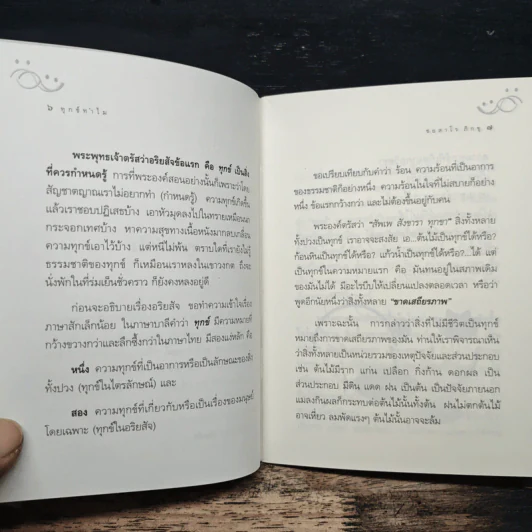 ๖ ทุกข์ทำไม
พระพุทธเจ้าตรัสว่าอริยสัจข้อแรก คือ ทุกข์ เป็นสิ่ง
ที่ควรกำหนดรู้ การที่พระองค์สอนอย่างนั้นก็เพราะว่าโดย
สัญชาตญาณเราไม่อยากทำ (กำหนดรู้) ความทุกข์เกิดขึ้น
แล้วเราชอบปฏิเสธบ้าง เอาหัวมุดลงไปในทรายเหมือนนก
กระจอกเทศบ้าง หาความสุขทางเนื้อหนังมากลบเกลื่อน
ความทุกข์เอาไว้บ้าง แต่หนีไม่พ้น ตราบใดที่เรายังไม่รู้
ธรรมชาติของทุกข์ ก็เหมือนเราหลงในเขาวงกต ถึงจะ
นั่งพักในที่ร่มเย็นชั่วคราว ก็ยังคงหลงอยู่ดี
ก่อนจะอธิบายเรื่องอริยสัจ ขอทำความเข้าใจเรื่อง
ภาษาสักเล็กน้อย ในภาษาบาลีคำว่า ทุกข์ มีความหมายที่
กว้างขวางกว่าและลึกซึ้งกว่าในภาษาไทย มีสองแง่หลัก คือ
หนึ่ง ความทุกข์ที่เป็นอาการหรือเป็นลักษณะของสิ่ง
ทั้งปวง (ทุกข์ในไตรลักษณ์) และ
สอง ความทุกข์ที่เกี่ยวกับหรือเป็นเรื่องของมนุษย์
โดยเฉพาะ (ทุกข์ในอริยสัจ)
ชยสาโร ภิกขุ ๗
ขอเปรียบเทียบกับคำว่า ร้อน ความร้อนที่เป็นอาการ
ของธรรมชาติก็อย่างหนึ่ง ความร้อนในใจที่ไม่สบายก็อย่าง
หนึ่ง ข้อแรกกว้างกว่า และไม่ต้องขึ้นอยู่กับคน
พระองค์ตรัสว่า "สัพเพ สังขารา ทุกขา" สิ่งทั้งหลาย
ทั้งปวงเป็นทุกข์ เราอาจจะสงสัย เอ...ต้นไม้เป็นทุกข์ได้หรือ?
ก้อนหินเป็นทุกข์ได้หรือ? แก้วน้ำเป็นทุกข์ได้หรือ?...ได้ แต่
เป็นทุกข์ในความหมายแรก คือ มันทนอยู่ในสภาพเดิม
ของมันไม่ได้ มีอะไรบีบให้เปลี่ยนแปลงตลอดเวลา หรือว่า
พูดอีกนัยหนึ่งว่าสิ่งทั้งหลาย "ขาดเสถียรภาพ"
เพราะฉะนั้น การกล่าวว่าสิ่งที่ไม่มีชีวิตเป็นทุกข์
หมายถึงการขาดเสถียรภาพของมัน ท่านให้เราพิจารณาเห็น
ว่าสิ่งทั้งหลายเป็นหน่วยรวมของเหตุปัจจัยและส่วนประกอบ
เช่น ต้นไม้มีราก แก่น เปลือก กิ่งก้าน ดอกผล เป็น
ส่วนประกอบ มีดิน แดด ฝน เป็นต้น เป็นปัจจัยภายนอก
แมลงกินผลก็กระทบต่อต้นไม้นั้นทั้งต้น ฝนไม่ตกต้นไม้
อาจเหี่ยว ลมพัดแรงๆ ต้นไม้นั้นอาจจะล้ม